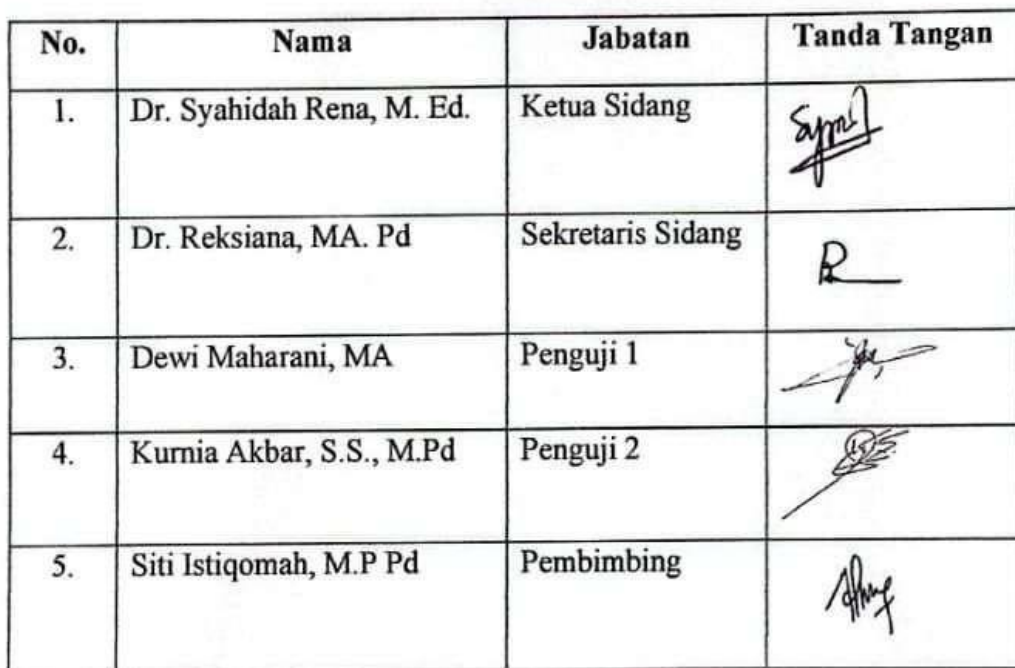 No. Nama Jabatan Tanda Tangan
1. Dr. Syahidah Rena, M. Ed. Ketua Sidang
2. Dr. Reksiana, MA. Pd Sekretaris Sidang
3. Dewi Maharani, MA Penguji 1
4. Kurnia Akbar, S.S., M.Pd Penguji 2
5. Siti Istiqomah, M.P Pd Pembimbing